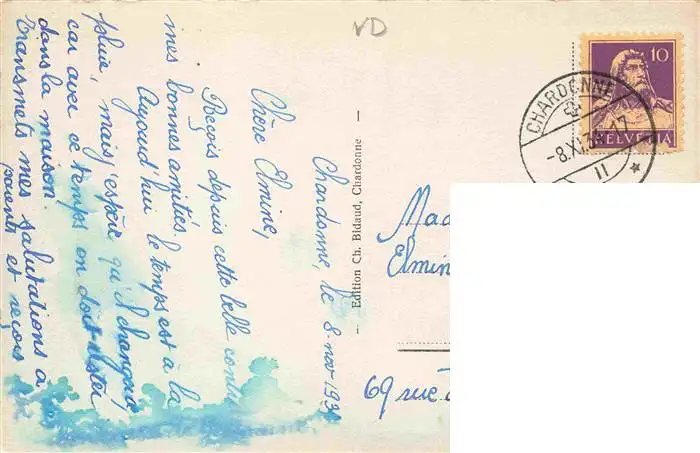 VD
10
HELVETIA
CHARDONNE
-8.XI.
17
11
Chardonne, le 8 nov 193
Chère Elmine,
Reçois depuis cette belle
mes bonnes amitiés.
Aujourd'hui le temps est à la
pluie, mais j'espère qu'il changera,
car avec ce temps on doit rester
dans la maison.
Transmets mes salutations à
parents et reçois
- Edition Ch. Bidaud, Chardonne -
Mad
Elmin
69 rue